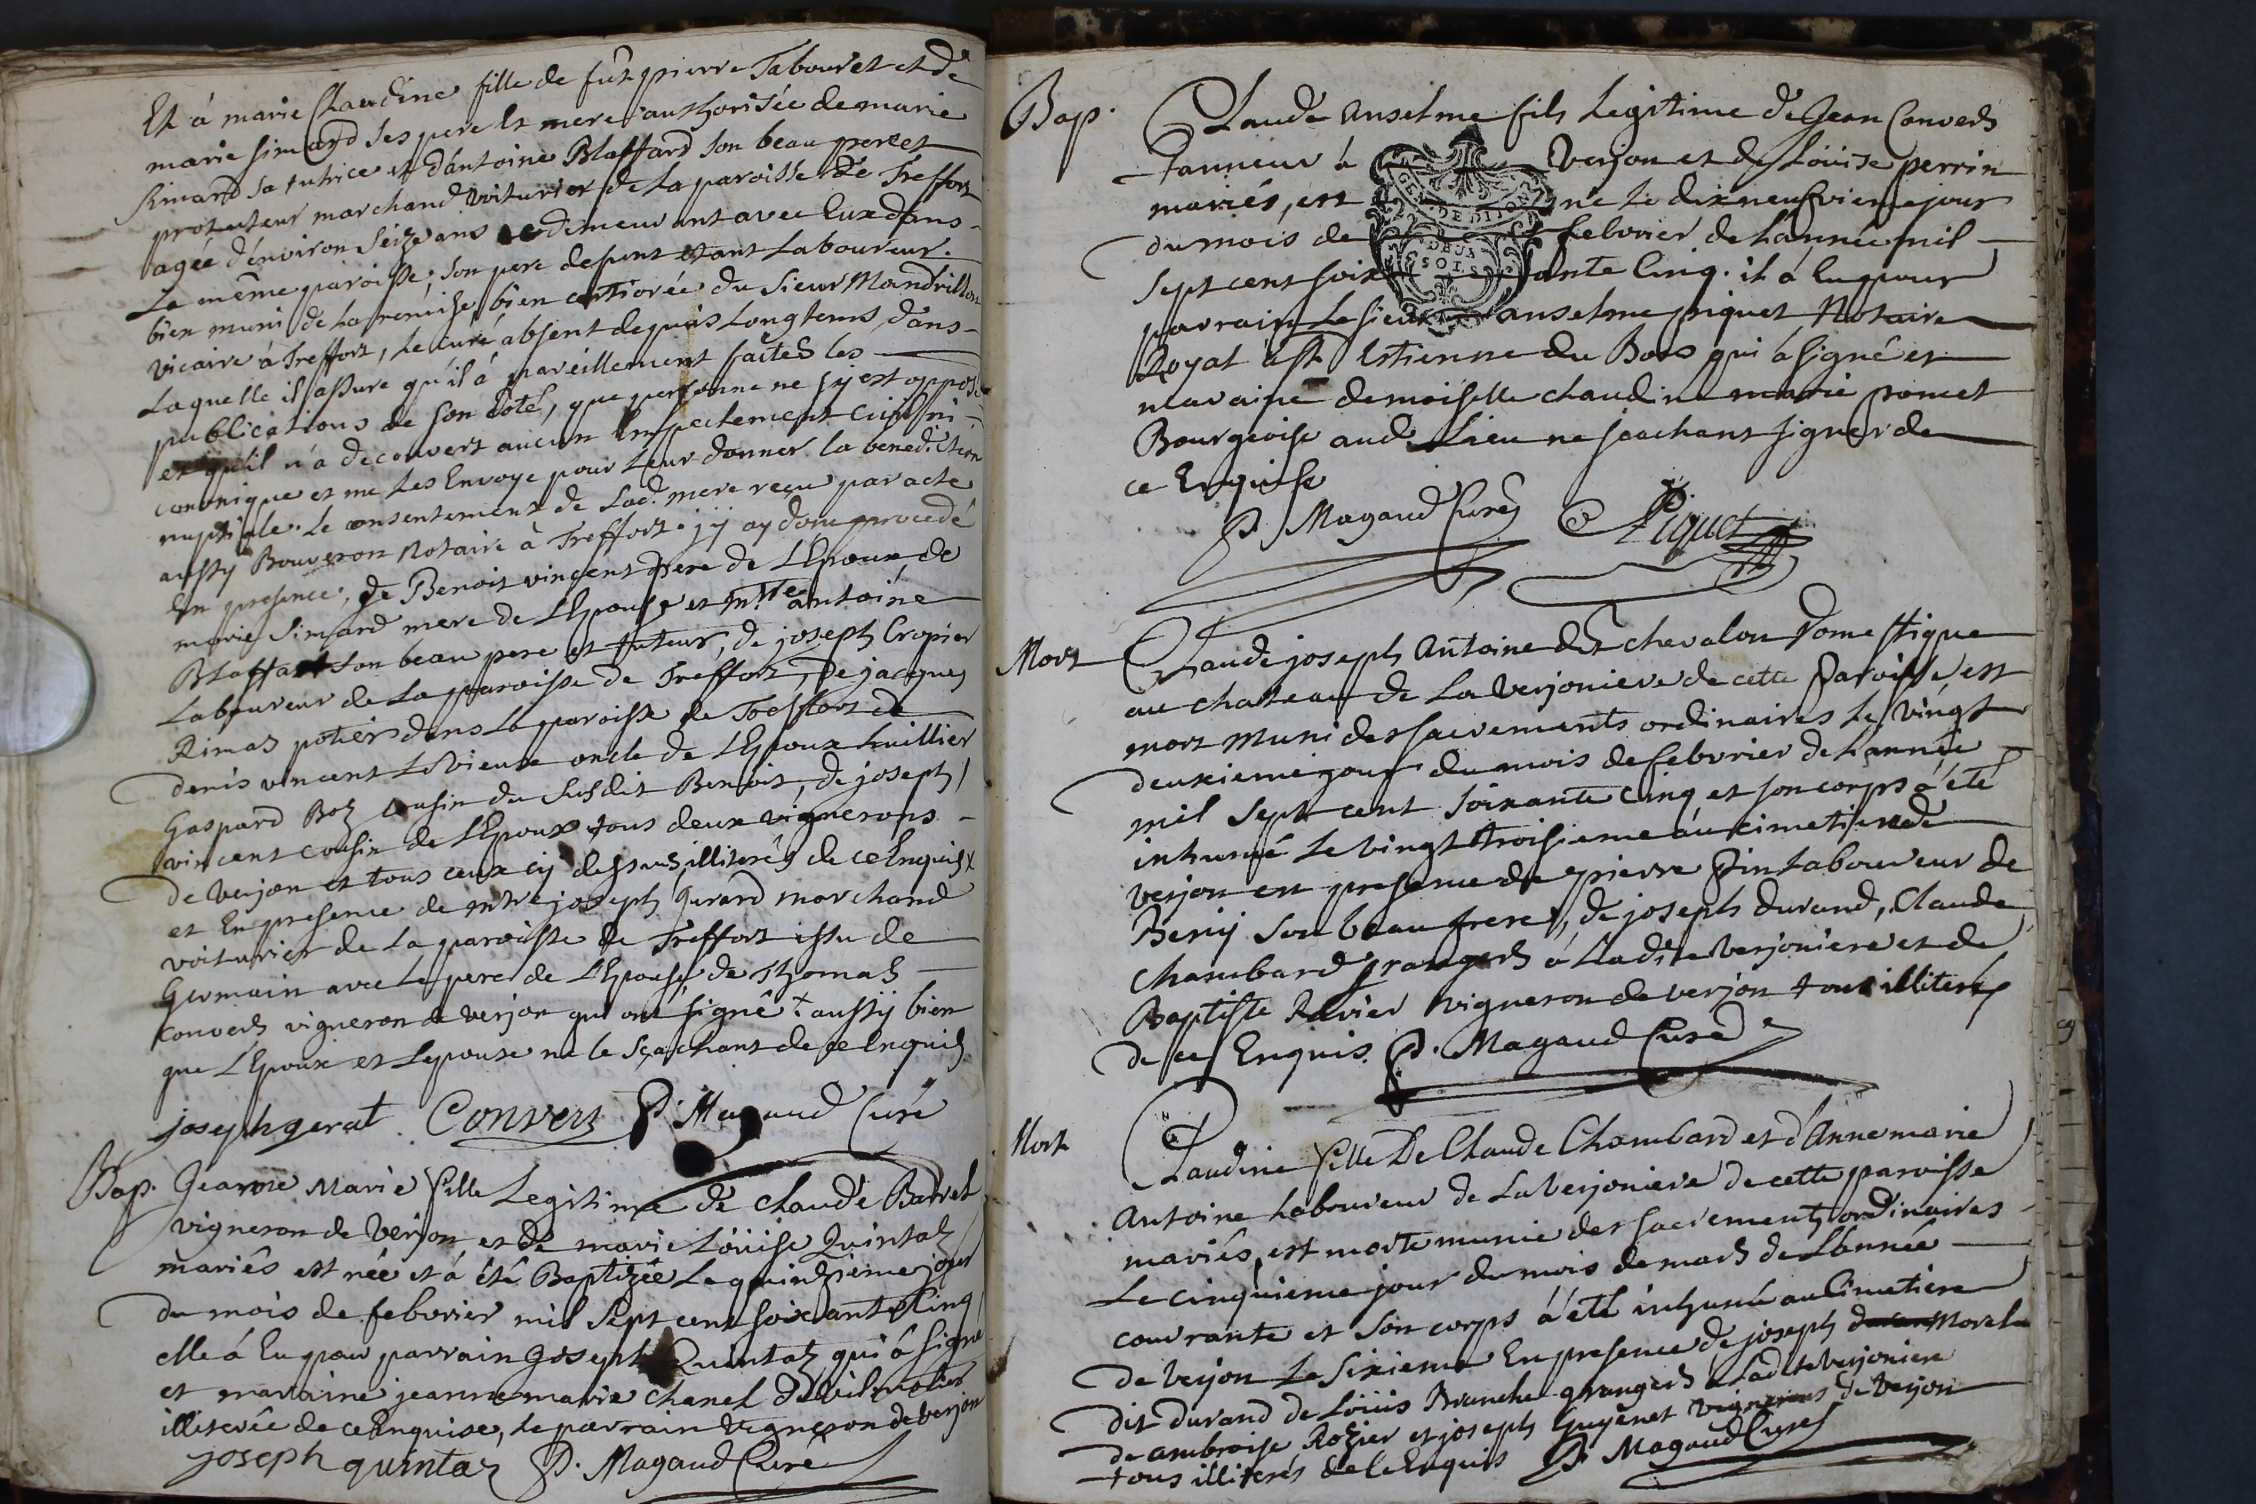 Et à marie Claudine fille de fût pierre Tabouret et de
marie simard ses pere et mere authorisée de marie
Simard sa tutrice et d'antoine Blaffard son beau pere et
protuteur marchand voiturier de la paroisse de Treffort
agée d'environ seize ans demeurant avec Eux dans
la même paroisse, son pere defunt etant Laboureur.
bien muni de la remise bien du sieur Mandrillon
vicaire à Treffort, le curé absent depuis longtems, dans
laquelle il assure qu'il á pareillement faites les
publications de son côté, que personne ne s'y est opposé
et qu'il n'a decouvert aucun Empechement ni
canonique et me les Envoye pour leur donner la benediction
nuptiale. le consentement de lad. mere reçu par acte
aussy Bouveron Notaire à Treffort. j'y ay donc procedé
En presence, de Benoit vincent pere de l'Epoux, de
marie simard mere de l'Epouse et mtre antoine
Blaffard son beau pere et tuteur, de joseph Cropier
Laboureur de la paroisse de Treffort, de jacques
Rimaz potier dans la paroisse de Treffort de
denis vincent le vieux oncle de l'Epoux huillier
Gaspard Boz cousin du susdit Benoit, de joseph
vincent cousin de l'Epoux tous deux vignerons
de verjon et tous ceux cy dessus illiterés de ce Enquis
et En presence de mtre joseph Gerard marchand
voiturier de la paroisse de Treffort issu de
Germain avec le pere de l'Epouse, de Thomas
convers vigneron de verjon qui ont signé + aussy bien
que l'Epoux et l'epouse ne le sçachant de ce Enquis
joseph gerat Convers P. Magaud Curé
Bap. Jeanne Marie fille Legitime de claude Barret
vigneron de verjon et de marie Loüise Quintaz
mariés est née et á été Baptizée le quinzieme jour
du mois de febvrier mil sept cent soixante Cinq
elle á Eu pour parrain Joseph Quintaz qui á signé
et maraine jeanne marie chanel de vilmotier
illiterée de ce Enquise, le parrain vigneron de verjon
joseph quintaz P. Magaud Curé
Bap. Claude anselme fils Legitime de Jean Convers
Tanneur à Verjon et de Loüise perrin
mariés, est né le dix neufvieme jour
du mois de febvrier de l'année mil
sept cent soixante Cinq. il á Eu pour
parrain le sieur anselme piquet Notaire
Royal à st Estienne du Bois qui à signé et
maraine demoiselle claudine marie poncet
Bourgeoise aud. Lieu ne sçachant signer de
ce Enquise
P. Magaud Curé Piquet
GEN. DE DIJON
DEUX
SOLS
Mort Claude joseph Antoine dit chevalon Domestique
au chateau de la verjoniere de cette Paroisse, est
mort muni des sacrements ordinaires le vingt
deuxieme jour du mois de febvrier de l'année
mil sept cent soixante cinq et son corps á été
inhumé le vingt troisieme au cimetiere de
verjon en presence de pierre Pin laboureur de
Beny son beau frere, de joseph durand, Claude
Chambard grangers á Ladite verjoniere et de
Baptiste Ravier vigneron de verjon tous illiterés
de ce Enquis. P. Magaud Curé
Mort Claudine fille De Claude Chambard et d'Anne marie
Antoine laboureur de la verjoniere de cette paroisse
mariés, est morte munie des sacrements ordinaires
Le cinquieme jour du mois de mars de L'année
courrante et son corps á été inhumé au Cimetiere
de verjon le sixieme En presence de joseph Morel
dit durand de Loüis Branche grangers á Ladite verjoniere
de ambroise Rozier et joseph Guyénet vignerons de verjon
tous illiterés de ce Enquis P. Magaud Curé